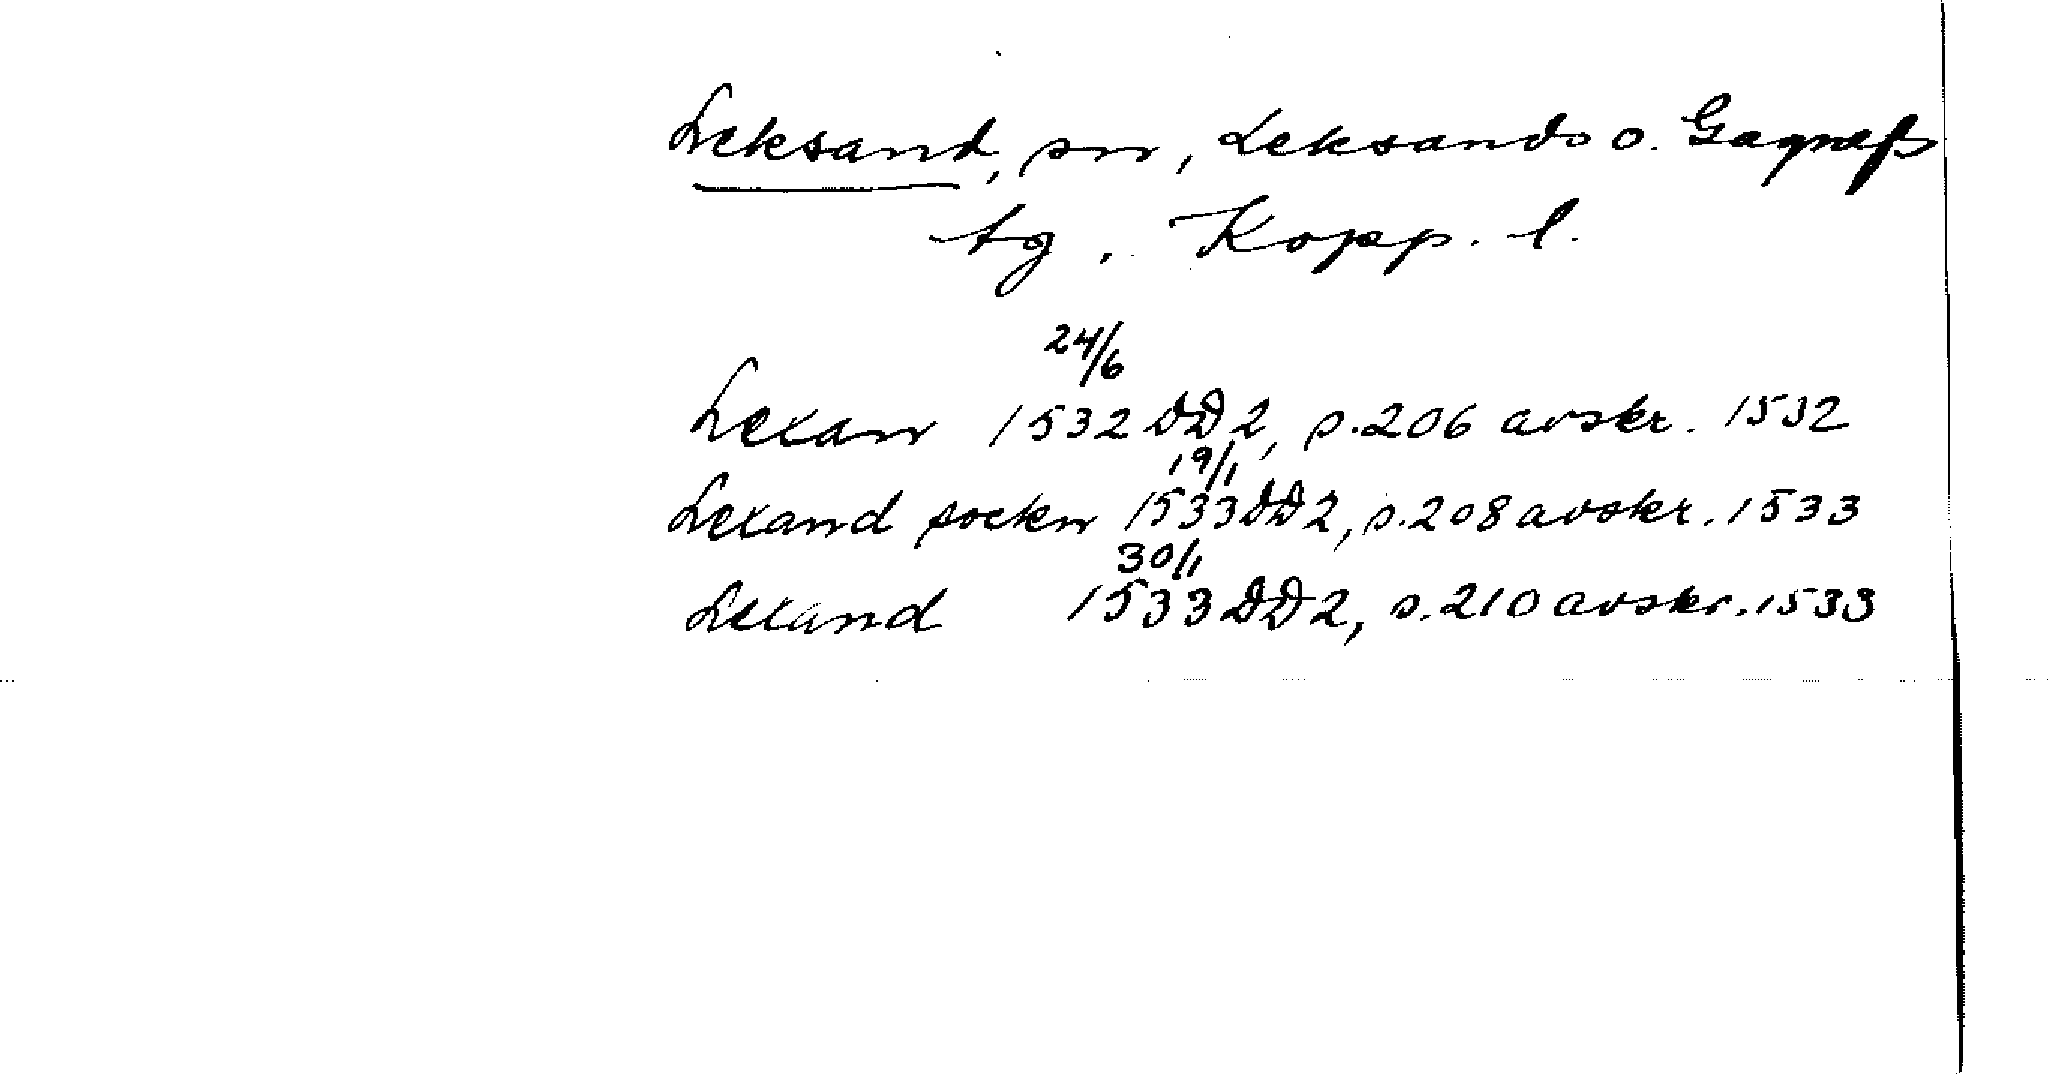 Leksand, sn, Leksands o. Gagnefs
tg, Kopp. l.
24/6
Lexan 1532 DD2, s. 206 avskr. 1532
19/1
Lexand sockn 1533 DD2, s. 208 avskr. 1533
30/1
Lexand 1533 DD2, s. 210 avskr. 1533